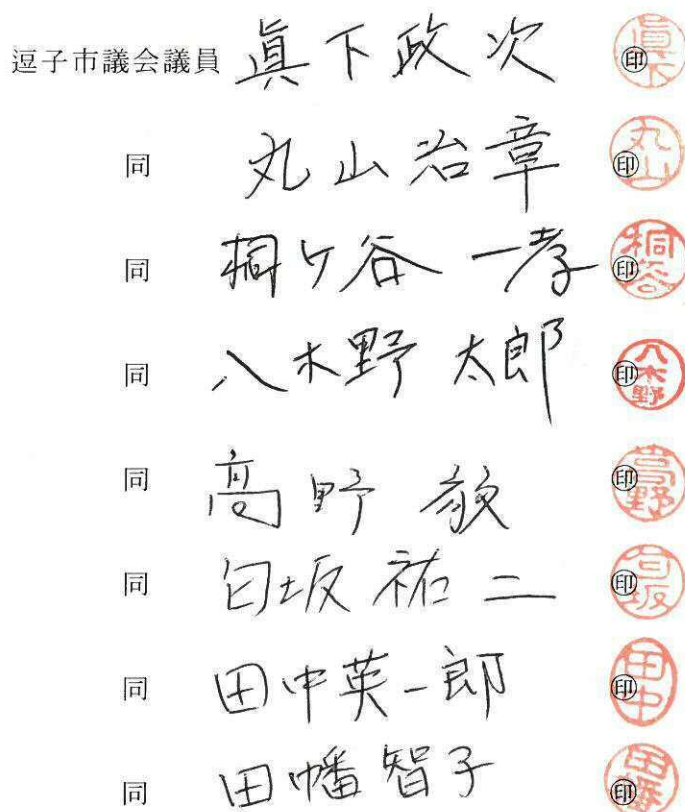 逗子市議会議員 眞下政次 ㊞ 眞下
同 丸山治章 ㊞ 丸山
同 桐ケ谷一孝 ㊞ 桐谷
同 八木野太郎 ㊞ 八木野
同 髙野毅 ㊞ 髙野
同 匂坂祐二 ㊞ 匂坂
同 田中英一郎 ㊞ 田中
同 田幡智子 ㊞ 田幡